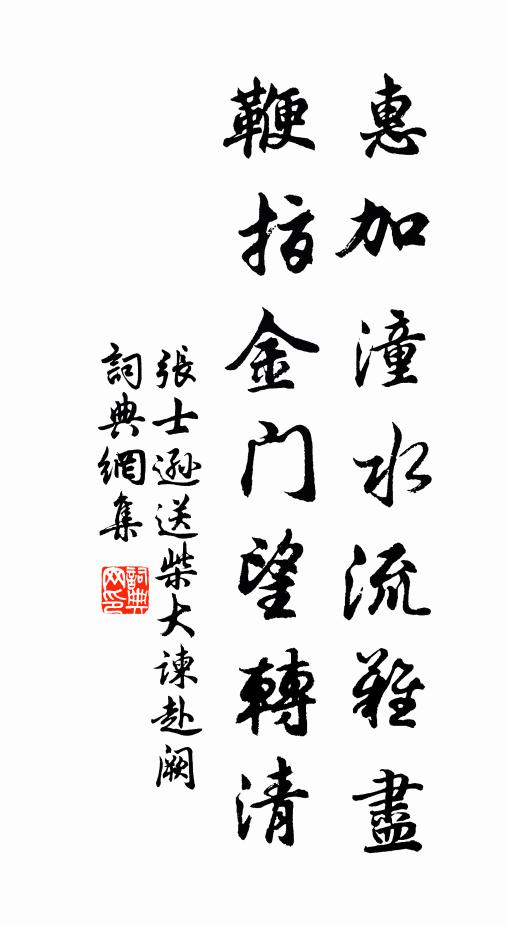 惠加潼水流難盡
鞭指金门望轉清
張士遜送柴大諫赴闕
詞典網集
詞典
网印